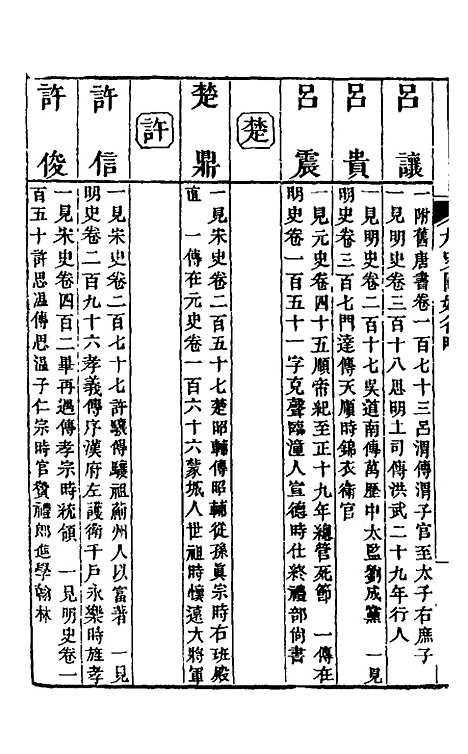 呂讓
一附舊唐書卷一百七十三呂渭傳渭子官至太子右庶子
一見明史卷三百十八思明土司傳洪武二十九年行人
呂貴
一見明史卷二百十七吳道南傳萬歷中太監劉成黨　一見
明史卷三百七門達傳天順時錦衣衛官
呂震
一見元史卷四十五順帝紀至正十九年總管死節　一傳在
明史卷一百五十一字克聲臨潼人宣德時仕終禮部尚書
楚
楚鼎
一見宋史卷二百五十七楚昭輔傳昭輔從孫眞宗時右班殿
直　一傳在元史卷一百六十六蒙城人世祖時懷遠大將軍
許
許信
一見宋史卷二百七十七許驤傳驤祖薊州人以富著　一見
明史卷二百九十六孝義傳序漢府左護衛千戶永樂時旌孝
許俊
一見宋史卷四百二畢再遇傳孝宗時統領　一見明史卷一
百五十許思溫傳思溫子仁宗時官贊禮郎進學翰林